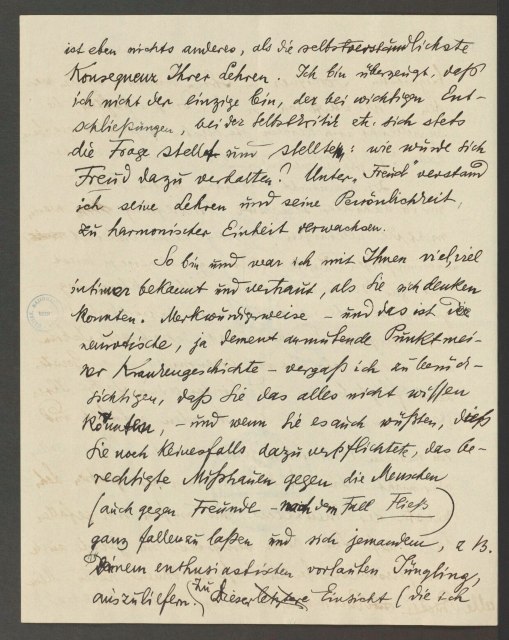 ist eben nichts anderes, als die selbstverständlichste
Konsequenz Ihrer Lehren. Ich bin überzeugt, daß
ich nicht der einzige bin, der bei wichtigen Ent-
schließungen, bei der Selbstkritik etc. sich stets
die Frage stellt und stellte: wie würde sich
Freud dazu verhalten? Unter „Freud" verstand
ich seine Lehren und seine Persönlichkeit,
zu harmonischer Einheit verwachsen.
So bin und war ich mit Ihnen viel, viel
intimer bekannt und vertraut, als Sie sich denken
konnten. Merkwürdigerweise – und das ist der
neurotische, ja dement anmutende Punkt mei-
ner Krankengeschichte – vergaß ich zu berück-
sichtigen, daß Sie das alles nicht wissen
konnten, – und wenn Sie es auch wüßten, dieß
Sie noch keinesfalls dazu verpflichtete, das be-
rechtigte Mißtrauen gegen die Menschen
(auch gegen Freunde – nach dem Fall Fließ)
ganz fallen zu laßen und sich jemandem, z B.
einem enthusiastischen vorlauten Jüngling,
auszuliefern. Zu dieser letztere Einsicht (die ich